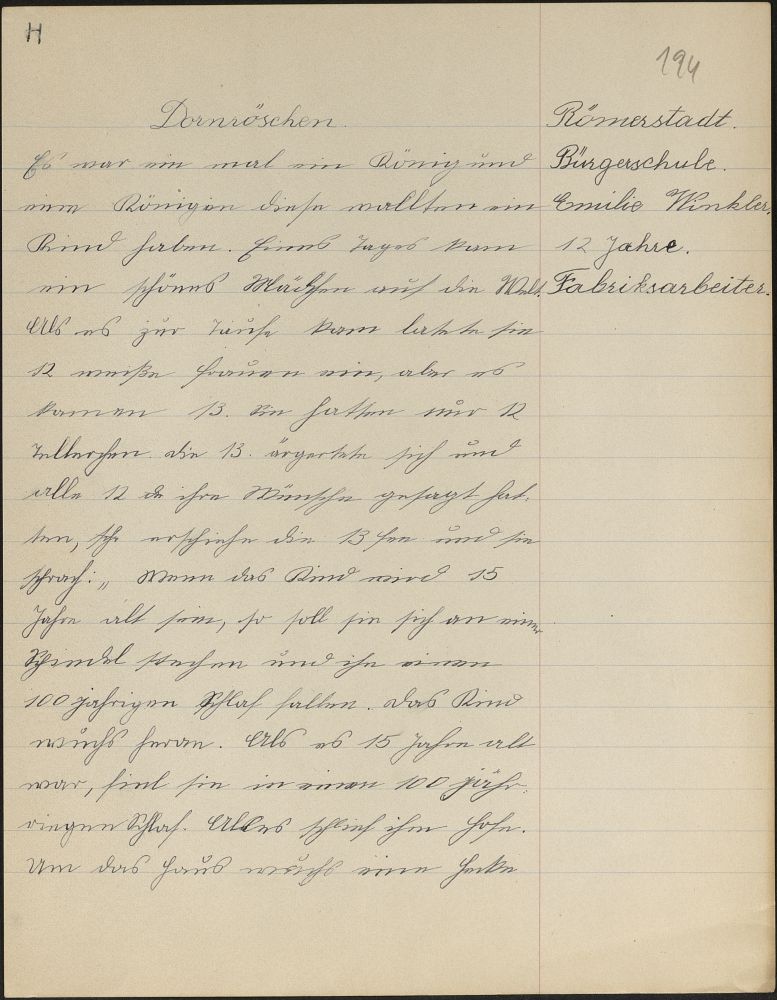 H
194
Dornröschen.
Es war ein mal ein König und
eine Königin diese wollten ein
Kind haben. Eines Tages kam
ein schönes Mädchen auf die Welt.
Als es zur Taufe kam ladete sie
12 weiße Frauen ein, aber es
kamen 13. Sie hatten nur 12
Tellerchen. die 13. ärgertete sich und
alle 12 die ihre Wünsche gesagt hat-
ten, erschiehn die 13 Fee und sie
sprach: „Wenn das Kind wird 15
Jahre alt sein, so soll sie sich an einer
Spindel stechen und in einen
100 jahrigen Schlaf fallen. Das Kind
wuchs heran. Als es 15 Jahre alt
war, fiel sie in einen 100 jähr-
riegen Schlaf. Alles schlief ihm Hofe.
Um das Haus wuchs eine Hecke
Römerstadt.
Bürgerschule.
Emilie Winkler.
12 Jahre.
Fabriksarbeiter.